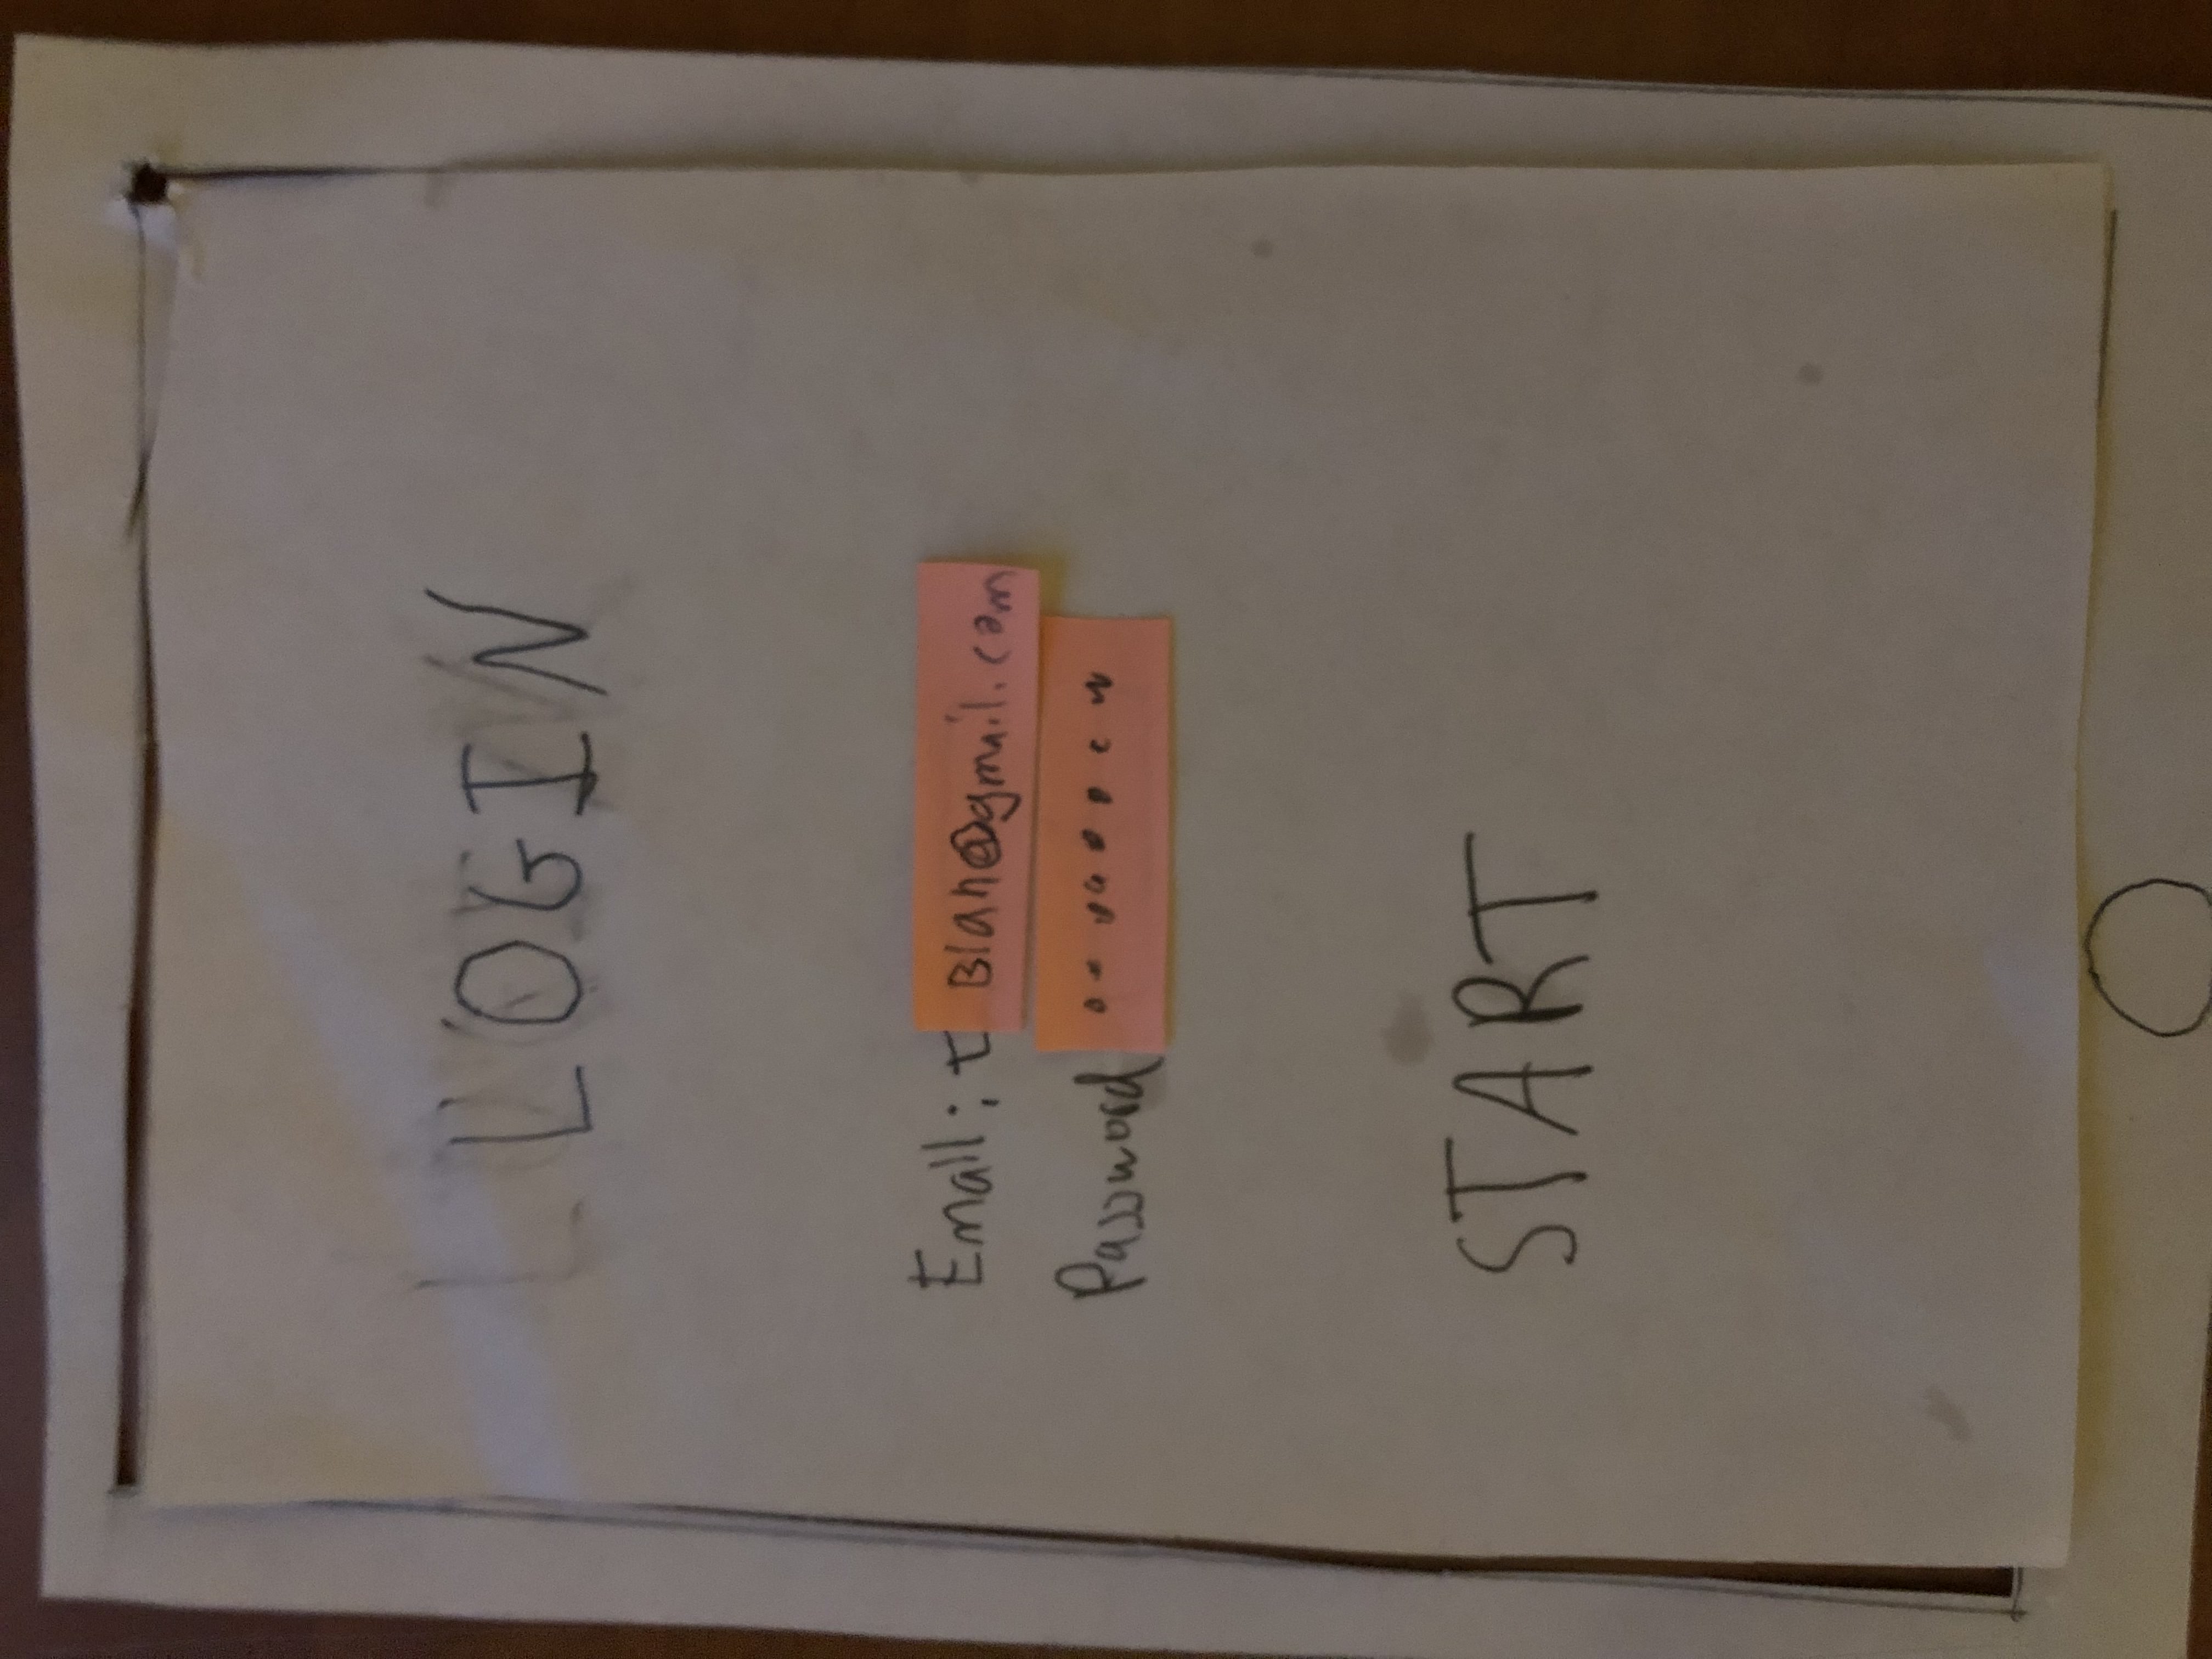 LOGIN
Email: Blah@gmail.com
Password ........
START